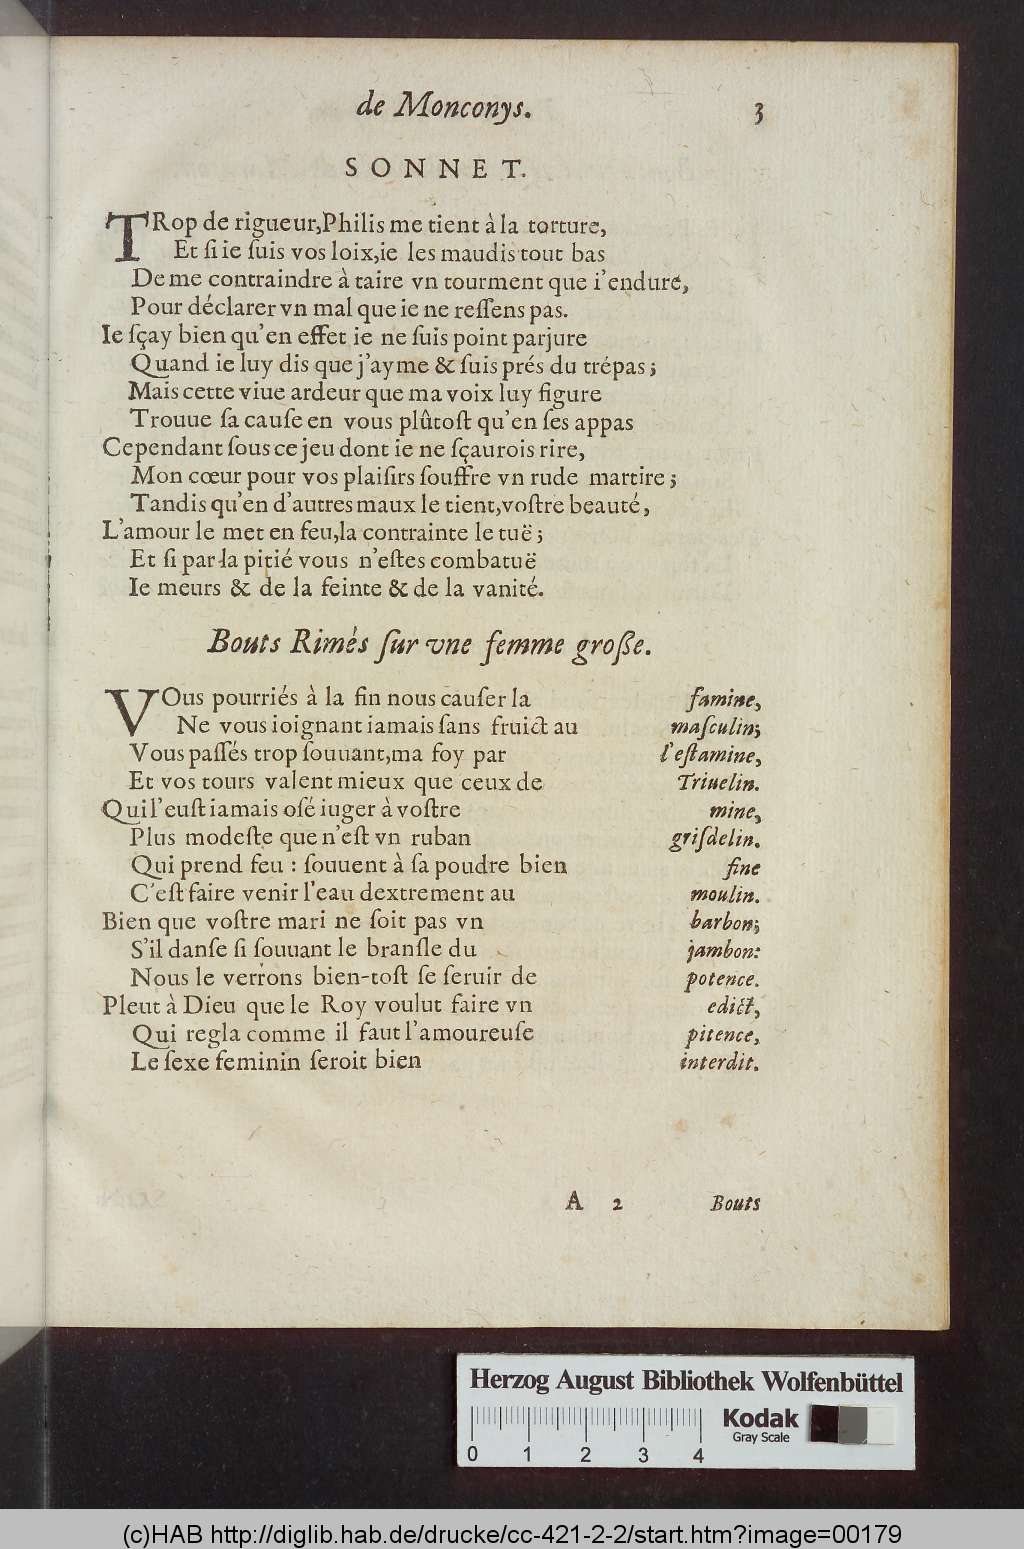 de Monconys. 3
SONNET.
TRop de rigueur,Philis me tient à la torture,
Et si ie suis vos loix,ie les maudis tout bas
De me contraindre à taire vn tourment que i'endure,
Pour déclarer vn mal que ie ne ressens pas.
Ie sçay bien qu'en effet ie ne suis point parjure
Quand ie luy dis que j'ayme & suis prés du trépas;
Mais cette viue ardeur que ma voix luy figure
Trouue sa cause en vous plûtost qu'en ses appas
Cependant sous ce jeu dont ie ne sçaurois rire,
Mon cœur pour vos plaisirs souffre vn rude martire;
Tandis qu'en d'autres maux le tient,vostre beauté,
L'amour le met en feu,la contrainte le tuë;
Et si par la pitié vous n'estes combatuë
Ie meurs & de la feinte & de la vanité.
Bouts Rimés sur vne femme grosse.
VOus pourriés à la fin nous causer la famine,
Ne vous ioignant iamais sans fruict au masculin;
Vous passés trop souuant,ma foy par l'estamine,
Et vos tours valent mieux que ceux de Triuelin.
Qui l'eust iamais osé iuger à vostre mine,
Plus modeste que n'est vn ruban grisdelin.
Qui prend feu : souuent à sa poudre bien fine
C'est faire venir l'eau dextrement au moulin.
Bien que vostre mari ne soit pas vn barbon;
S'il danse si souuant le bransle du jambon:
Nous le verrons bien-tost se seruir de potence.
Pleut à Dieu que le Roy voulut faire vn edict,
Qui regla comme il faut l'amoureuse pitence,
Le sexe feminin seroit bien interdit.
A 2 Bouts
Herzog August Bibliothek Wolfenbüttel
Kodak
Gray Scale
0 1 2 3 4
(c)HAB http://diglib.hab.de/drucke/cc-421-2-2/start.htm?image=00179